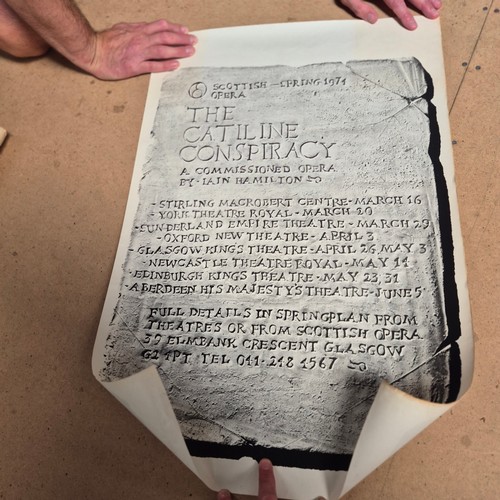 SCOTTISH - SPRING 1974
OPERA
THE
CATILINE
CONSPIRACY
A COMMISSIONED OPERA
BY · IAIN HAMILTON
- STIRLING MACROBERT CENTRE - MARCH 16
- YORK THEATRE ROYAL - MARCH 20
- SUNDERLAND EMPIRE THEATRE - MARCH 29
- OXFORD NEW THEATRE - APRIL 3
- GLASGOW KINGS THEATRE - APRIL 26, MAY 3
- NEWCASTLE THEATRE ROYAL - MAY 14
- EDINBURGH KINGS THEATRE - MAY 23, 31
- ABERDEEN HIS MAJESTY'S THEATRE - JUNE 5
FULL DETAILS IN SPRINGPLAN FROM
THEATRES OR FROM SCOTTISH OPERA
39 ELMBANK CRESCENT GLASGOW
G2 4PT · TEL 041-248 4567